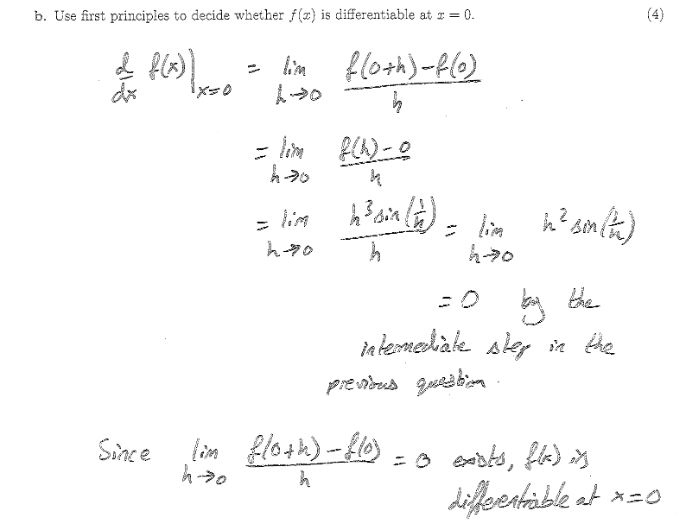 b. Use first principles to decide whether f(x) is differentiable at x = 0. (4)
d/dx f(x)|x=0 = lim h→0 f(0+h)-f(0) / h
= lim h→0 f(h)-0 / h
= lim h→0 h³ sin(1/h) / h = lim h→0 h² sin(1/h)
= 0 by the
intermediate step in the
previous question.
Since lim h→0 f(0+h)-f(0) / h = 0 exists, f(x) is
differentiable at x=0